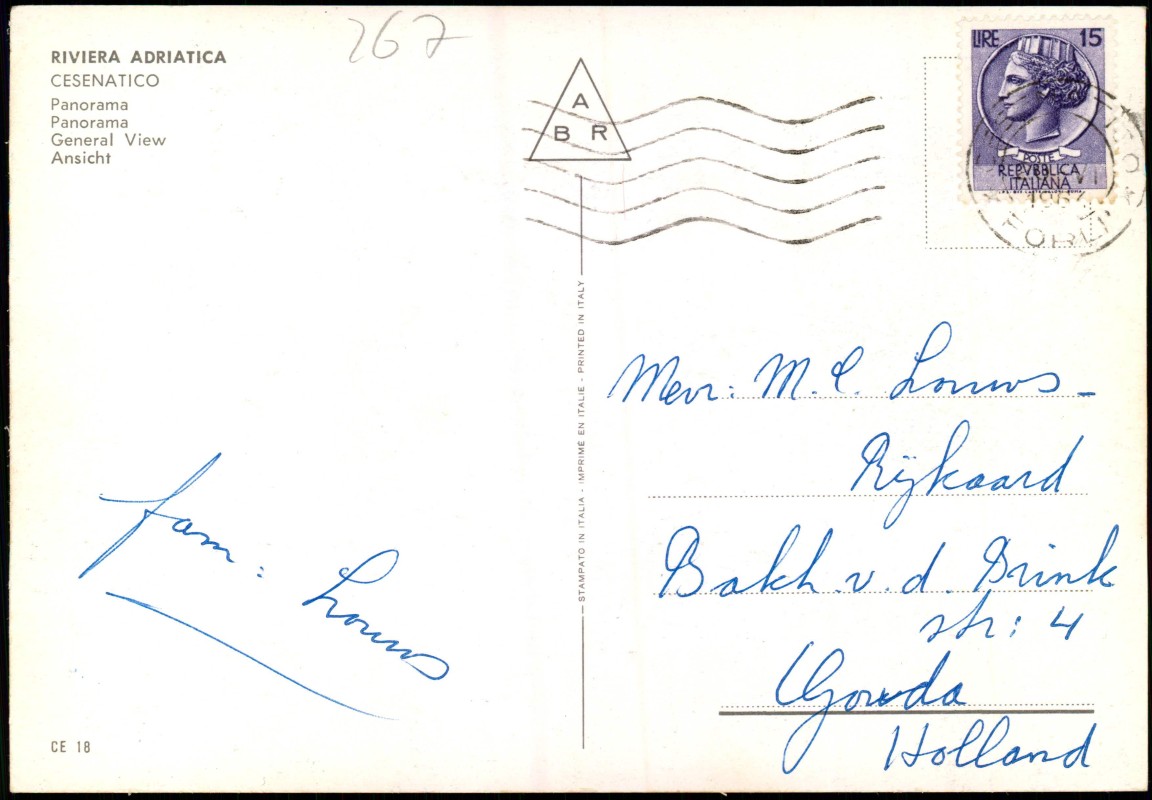 RIVIERA ADRIATICA
CESENATICO
Panorama
Panorama
General View
Ansicht
267
A
B R
LIRE 15
POSTE
REPVBBLICA
ITALIANA
FORLI
STAMPATO IN ITALIA - IMPRIMÉ EN ITALIE - PRINTED IN ITALY
Mevr: M. C. Louws -
Rijkaard
Bakh. v. d. Brink
str: 4
Gouda
Holland
Fam: Louws
CE 18